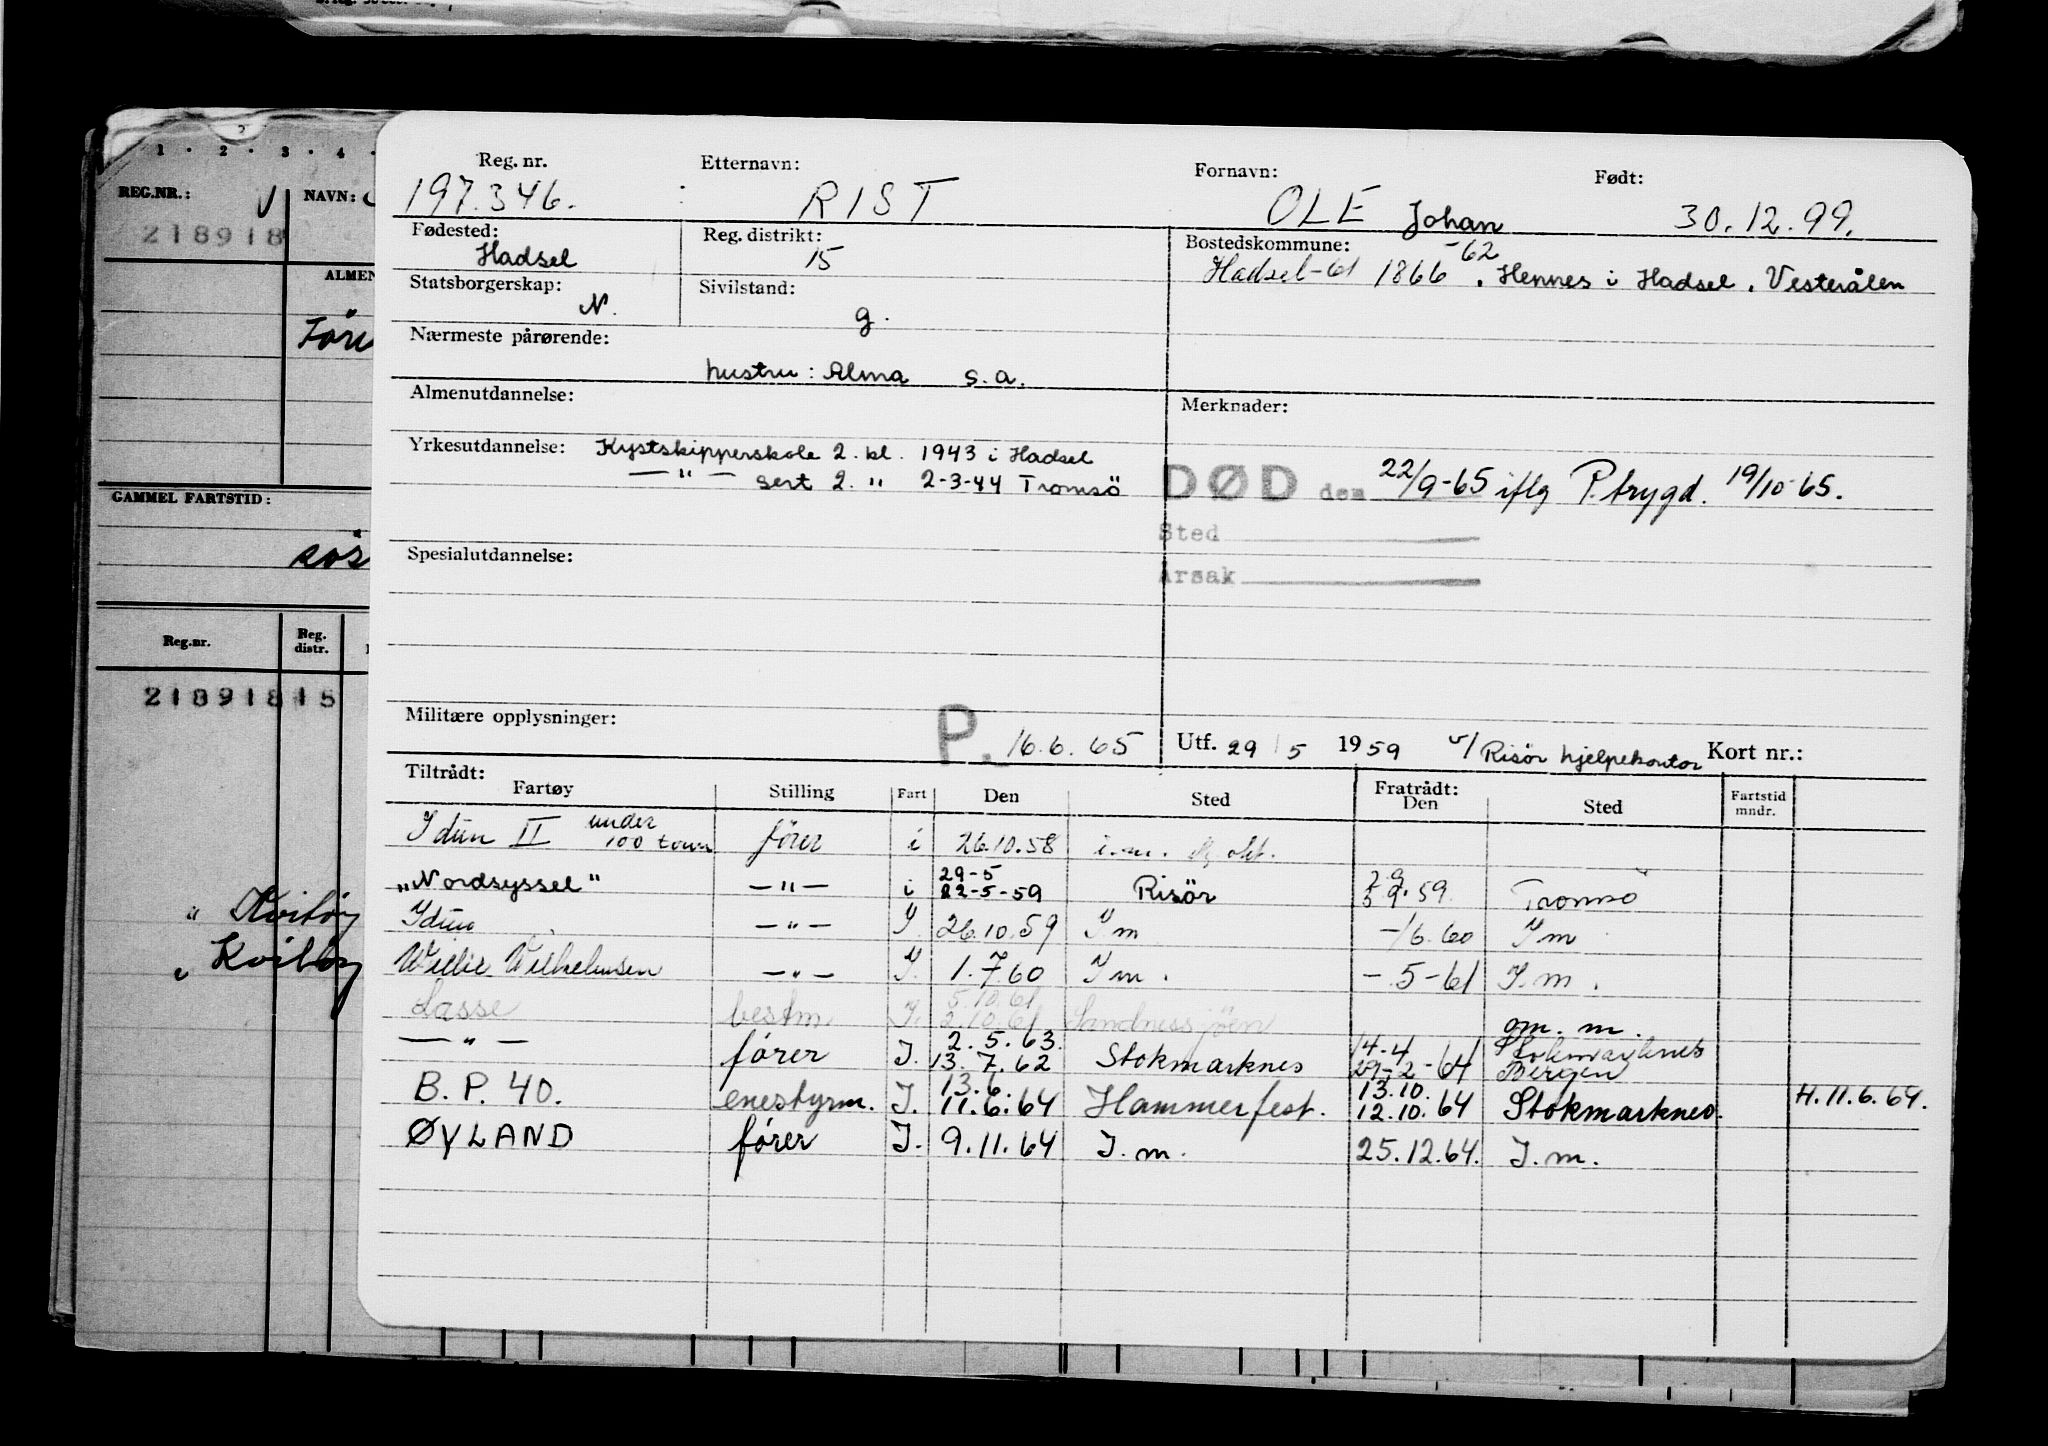 1 · 2 · 3 · 4 ·
REG.NR.: NAVN:
218918
ALMEN
GAMMEL FARTSTID:
Reg.nr. Reg. distr.
218918 15
Reg. nr. Etternavn: Fornavn: Født:
197.346. RIST OLE Johan 30.12.99.
Fødested: Hadsel Reg. distrikt: 15 Bostedskommune: -62
Hadsel-61 1866 . Hennes i Hadsel. Vesterålen
Statsborgerskap: N. Sivilstand: g.
Nærmeste pårørende:
hustru: Alma s.a.
Almenutdannelse: Merknader:
Yrkesutdannelse: Kystskipperskole 2. kl. 1943 i Hadsel
— " — sert 2. " 2-3-44 Tromsö
DØD den 22/9-65 iflg P.trygd. 19/10-65.
Sted
Årsak
Spesialutdannelse:
Militære opplysninger: P. 16.6.65 Utf. 29/5 1959 v/ Risör hjelpekontor Kort nr.:
Tiltrådt: Fratrådt:
Fartøy Stilling Fart Den Sted Den Sted Fartstid mndr.
Idun II under 100 tonn fører i 26.10.58 i.m.
"Nordsyssel" — " — i 29-5 22-5-59 Risör 9.59 Tromsö
Idun — " — I. 26.10.59 I m -/6.60 I m
Willie Wilhelmsen — " — I. 1.7.60 I m. -5-61 I. m.
Lasse bestm. I. 5.10.61 2.10.61 Sandnessjöen gm. m.
— " — fører I. 2.5.63. 13.7.62 Stokmarknes 14-4 29-2-64 Stokmarknes Bergen
B.P. 40. enestyrm. I. 13.6. 11.6.64 Hammerfest. 13.10. 12.10.64 Stokmarknes. H.11.6.64.
ØYLAND fører I. 9.11.64 I. m. 25.12.64. I. m.